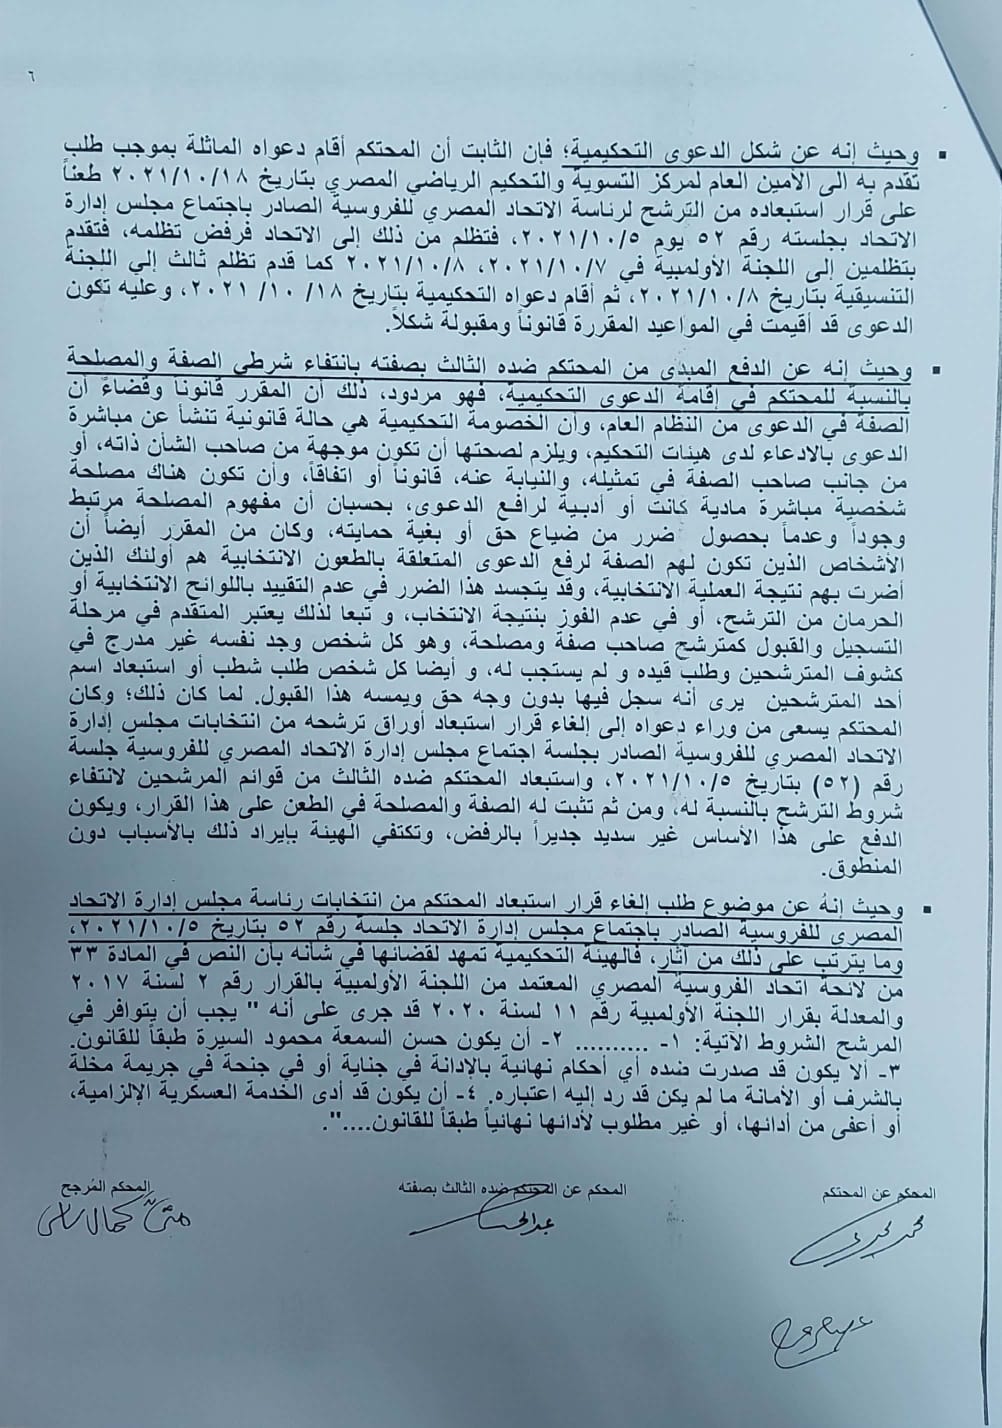 ٦
وحيث إنه عن شكل الدعوى التحكيمية؛ فإن الثابت أن المحتكم أقام دعواه الماثلة بموجب طلب
تقدم به الى الأمين العام لمركز التسوية والتحكيم الرياضي المصري بتاريخ ٢٠٢١/١٠/١٨ طعناً
على قرار استبعاده من الترشح لرئاسة الاتحاد المصري للفروسية الصادر باجتماع مجلس إدارة
الاتحاد بجلسته رقم ٥٢ يوم ٢٠٢١/١٠/٥، فتظلم من ذلك إلى الاتحاد فرفض تظلمه، فتقدم
بتظلمين إلى اللجنة الأولمبية في ٢٠٢١/١٠/٧، ٢٠٢١/١٠/٨ كما قدم تظلم ثالث إلي اللجنة
التنسيقية بتاريخ ٢٠٢١/١٠/٨، ثم أقام دعواه التحكيمية بتاريخ ١٨/ ١٠/ ٢٠٢١، وعليه تكون
الدعوى قد أقيمت في المواعيد المقررة قانوناً ومقبولة شكلاً.
وحيث إنه عن الدفع المبدى من المحتكم ضده الثالث بصفته بانتفاء شرطي الصفة والمصلحة
بالنسبة للمحتكم في إقامة الدعوى التحكيمية، فهو مردود، ذلك أن المقرر قانوناً وقضاءً أن
الصفة في الدعوى من النظام العام، وأن الخصومة التحكيمية هي حالة قانونية تنشأ عن مباشرة
الدعوى بالادعاء لدى هيئات التحكيم، ويلزم لصحتها أن تكون موجهة من صاحب الشأن ذاته، أو
من جانب صاحب الصفة في تمثيله، والنيابة عنه، قانوناً أو اتفاقاً، وأن تكون هناك مصلحة
شخصية مباشرة مادية كانت أو أدبية لرافع الدعوى، بحسبان أن مفهوم المصلحة مرتبط
وجوداً وعدماً بحصول ضرر من ضياع حق أو بغية حمايته، وكان من المقرر أيضاً أن
الأشخاص الذين تكون لهم الصفة لرفع الدعوى المتعلقة بالطعون الانتخابية هم أولئك الذين
أضرت بهم نتيجة العملية الانتخابية، وقد يتجسد هذا الضرر في عدم التقييد باللوائح الانتخابية أو
الحرمان من الترشح، أو في عدم الفوز بنتيجة الانتخاب، و تبعا لذلك يعتبر المتقدم في مرحلة
التسجيل والقبول كمترشح صاحب صفة ومصلحة، وهو كل شخص وجد نفسه غير مدرج في
كشوف المترشحين وطلب قيده و لم يستجب له، و أيضا كل شخص طلب شطب أو استبعاد اسم
أحد المترشحين يرى أنه سجل فيها بدون وجه حق ويمسه هذا القبول. لما كان ذلك؛ وكان
المحتكم يسعى من وراء دعواه إلى إلغاء قرار استبعاد أوراق ترشحه من انتخابات مجلس إدارة
الاتحاد المصري للفروسية الصادر بجلسة اجتماع مجلس إدارة الاتحاد المصري للفروسية جلسة
رقم (٥٢) بتاريخ ٢٠٢١/١٠/٥، واستبعاد المحتكم ضده الثالث من قوائم المرشحين لانتفاء
شروط الترشح بالنسبة له، ومن ثم تثبت له الصفة والمصلحة في الطعن على هذا القرار، ويكون
الدفع على هذا الأساس غير سديد جديراً بالرفض، وتكتفي الهيئة بإيراد ذلك بالأسباب دون
المنطوق.
وحيث إنهُ عن موضوع طلب إلغاء قرار استبعاد المحتكم من انتخابات رئاسة مجلس إدارة الاتحاد
المصري للفروسية الصادر باجتماع مجلس إدارة الاتحاد جلسة رقم ٥٢ بتاريخ ٢٠٢١/١٠/٥،
وما يترتب على ذلك من آثار، فالهيئة التحكيمية تمهد لقضائها في شأنه بأن النص في المادة ٣٣
من لائحة اتحاد الفروسية المصري المعتمد من اللجنة الأولمبية بالقرار رقم ٢ لسنة ٢٠١٧
والمعدلة بقرار اللجنة الأولمبية رقم ١١ لسنة ٢٠٢٠ قد جرى على أنه " يجب أن يتوافر في
المرشح الشروط الآتية: ١- .......... ٢- أن يكون حسن السمعة محمود السيرة طبقاً للقانون.
٣- ألا يكون قد صدرت ضده أي أحكام نهائية بالإدانة في جناية أو في جنحة في جريمة مخلة
بالشرف أو الأمانة ما لم يكن قد رد إليه اعتباره. ٤- أن يكون قد أدى الخدمة العسكرية الإلزامية،
أو أعفى من أدائها، أو غير مطلوب لأدائها نهائياً طبقاً للقانون....".
المحكم عن المحتكم
المحكم عن المحتكم ضده الثالث بصفته
المحكم المُرجح